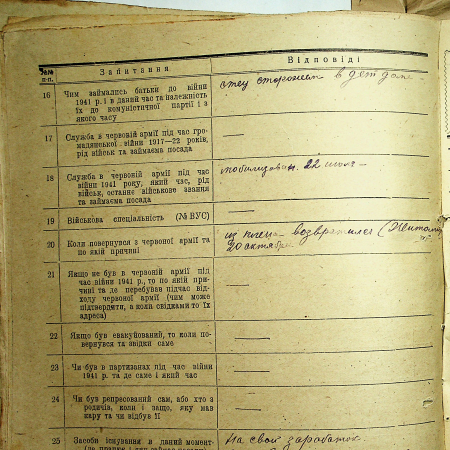 №№ п-п. Запитання Відповіді
16 Чим займались батьки до війни
1941 р. і в даний час та належність
їх до комуністичної партії і з
якого часу
отец сторожем в детдоме
17 Служба в червоній армії під час гро-
мадянської війни 1917—22 років,
рід військ та займаєма посада
—
18 Служба в червоній армії під час
війни 1941 року, який час, рід
військ, останнє військове звання
та займаєма посада
мобилизован. 22 июня –
19 Військова спеціяльність (№ ВУС)
—
20 Коли повернувся з червоної армії та
по якій причині
из плена возвратился (Житомир
20 октября
21 Якщо не був в червоній армії під
час війни 1941 р., то по якій при-
чині та де перебував підчас від-
ходу червоної армії (чим може
підтвердити, а коли свідками то їх
адреса)
—
22 Якщо був евакуйований, то коли по-
вернувся та звідки саме
—
23 Чи був в партизанах під час війни
1941 р. та де саме і який час
—
24 Чи був репресований сам, або хто з
родичів, коли і защо, яку мав
кару та чи відбув її
—
25 Засоби існування в даний момент
На свой заработок